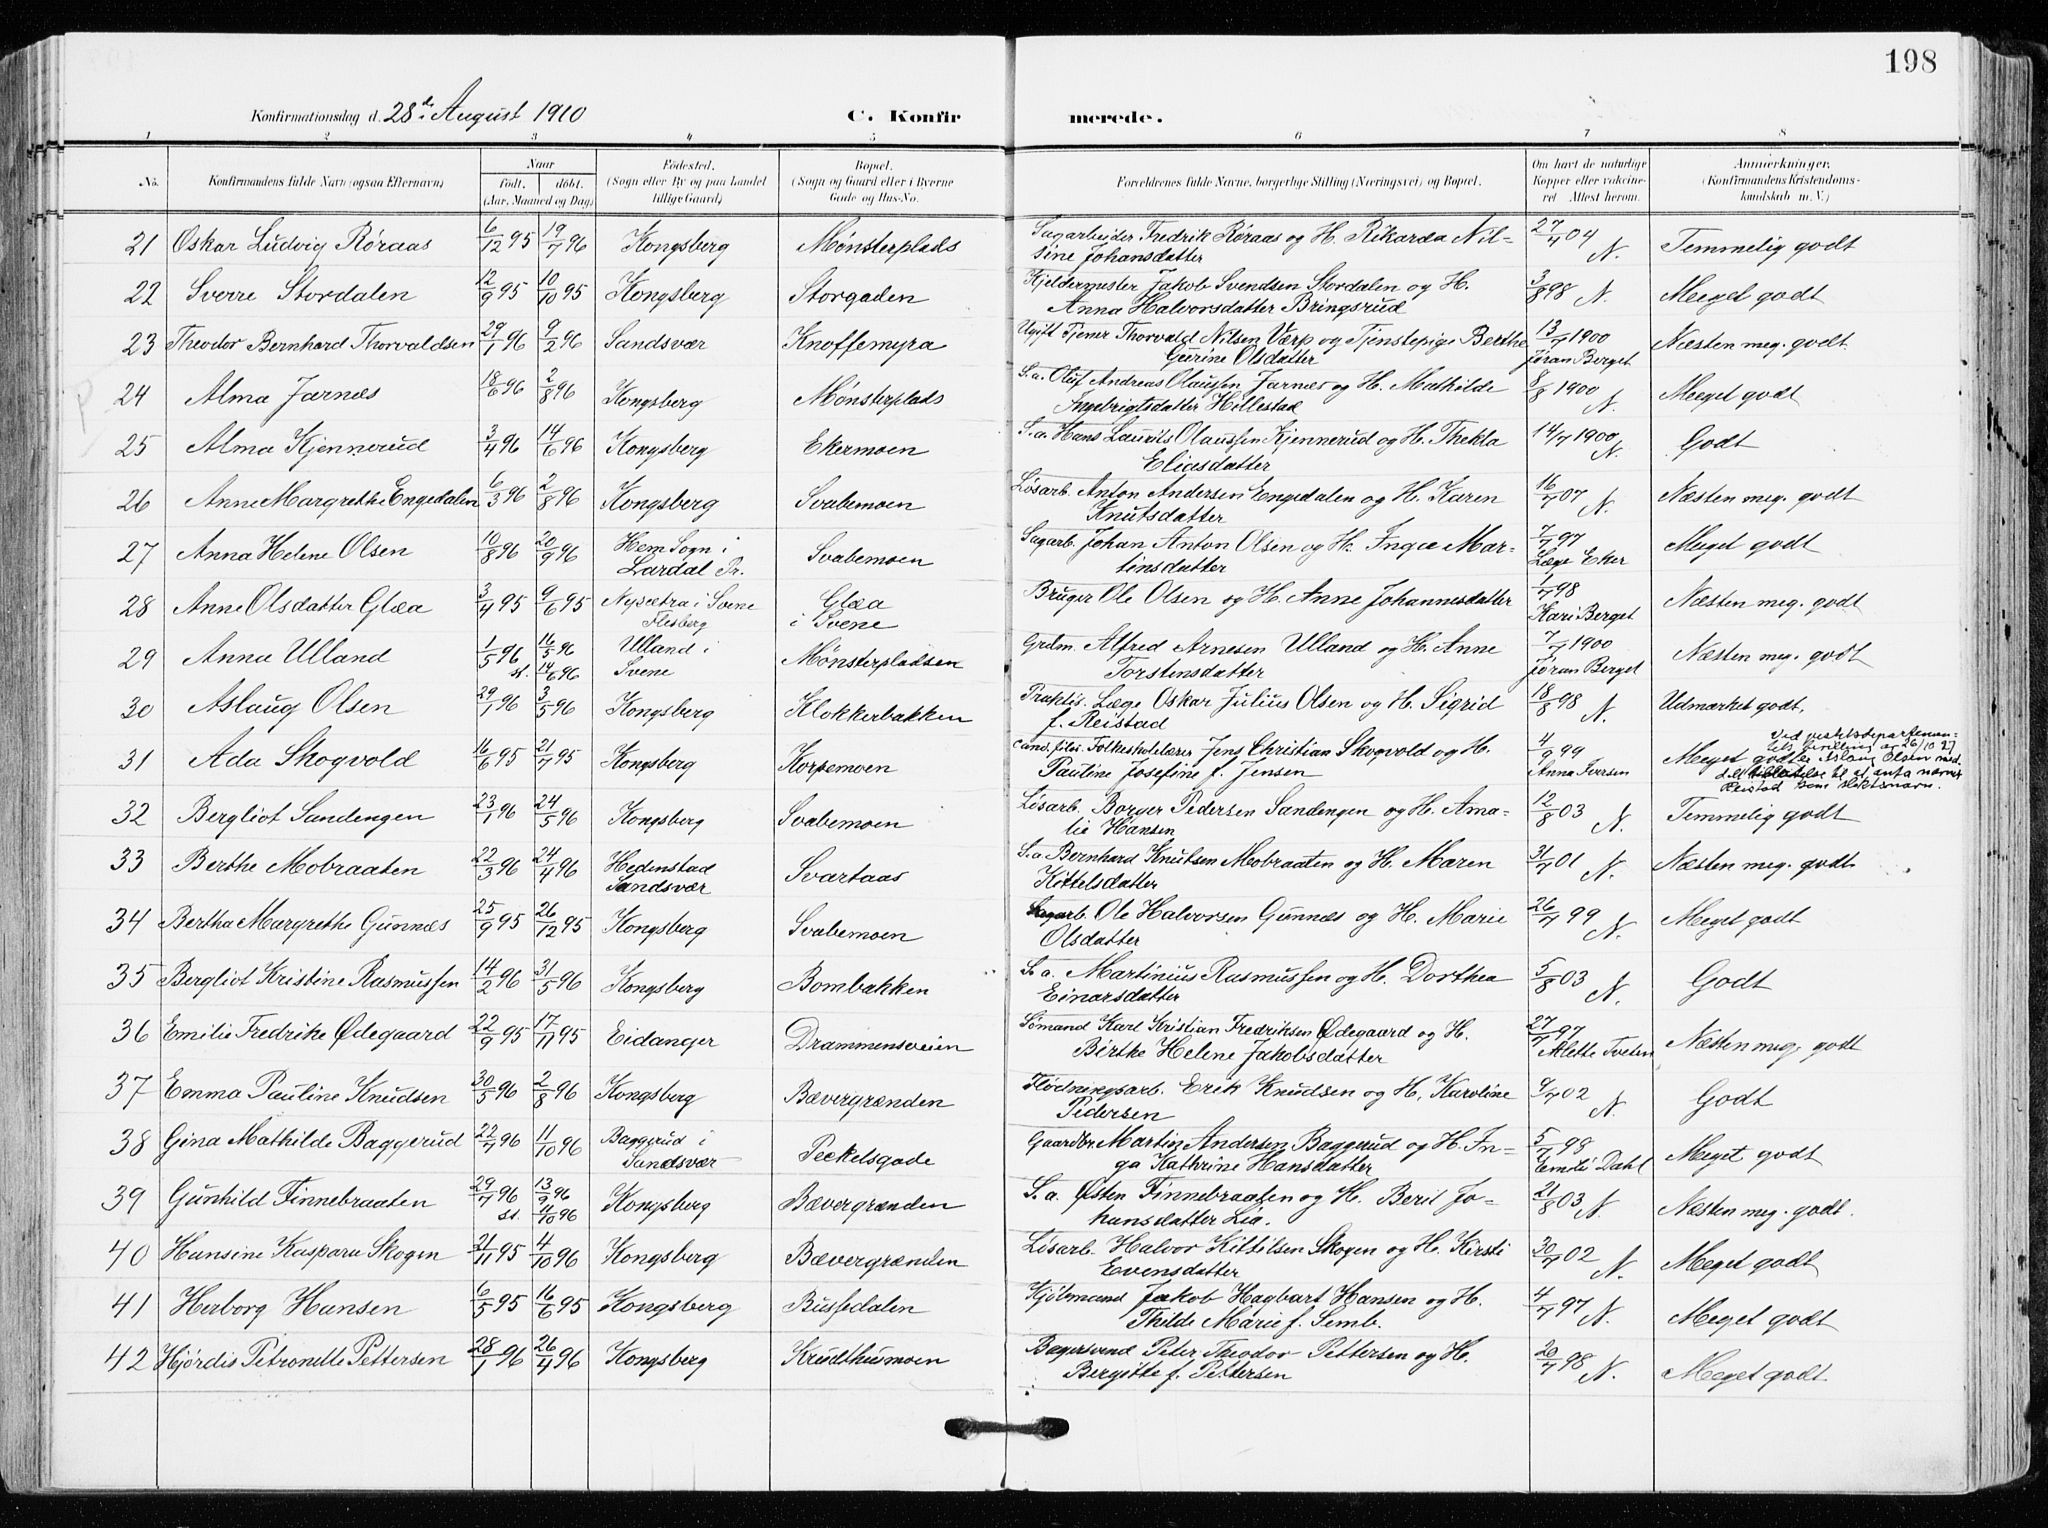 198
Konfirmationsdag d. 28de August 1910 C. Konfirmerede.
1 2 3 4 5 6 7 8
No. Konfirmandens fulde Navn (ogsaa Efternavn) Naar født. døbt. (Aar, Maaned og Dag) Fødested. (Sogn eller By og paa Landet tillige Gaard) Bopæl. (Sogn og Gaard eller i Byerne Gade og Hus-No. Forældrenes fulde Navne, borgerlige Stilling (Næringsvei) og Bopæl. Om havt de naturlige Kopper eller vaccineret. Attest herom. Anmerkninger. (Konfirmandens Kristendomskundskab m. V.)
21 Oskar Ludvig Røraas 6/12 95 19/7 96 Kongsberg Mønsterplads Sagarbeider Fredrik Røraas og H. Rikarda Nil- 27/7 04 N. Temmelig godt
sine Johansdatter
22 Sverre Stordalen 12/9 95 10/10 95 Kongsberg Storgaden Kjeldermester Jakob Svendsen Stordalen og H. 3/8 98 N. Meget godt
Anna Halvorsdatter Bringsrud
23 Theodor Bernhard Thorvaldsen 29/1 96 9/2 96 Sandsvær Knoffemyra Ugift Tjener Thorvald Nilsen Værp og Tjenstepige Berthe 13/7 1900 Næsten meg. godt.
Gurine Olsdatter Jøran Berget
24 Alma Jarnæs 18/6 96 2/8 96 Kongsberg Mønsterplads S.a. Oluf Andreas Olaussen Jarnæs og H. Mathilde 8/8 1900 N. Meget godt
Ingebrigtsdatter Hillestad
25 Alma Kjennerud 3/4 96 14/6 96 Kongsberg Ekermoen S.a. Hans Laurits Olaussen Kjennerud og H. Thekla 14/7 1900 N. Godt
Eliasdatter
26 Anne Margrethe Engedalen 6/3 96 2/8 96 Kongsberg Svabemoen Løsarb. Anton Andersen Engedalen og H. Karen 16/7 07 N. Næsten meg. godt
Knutsdatter
27 Anna Helene Olsen 10/8 96 20/9 96 Hem Sogn i Svabemoen Sagarb. Johan Anton Olsen og H. Inga Mar- 7/7 97 Meget godt
Lardal Pr. tinsdatter Læge Eker
28 Anne Olsdatter Glæa 3/4 95 9/6 95 Nysætra i Svene Glæa Bruger Ole Olsen og H. Anne Johannesdatter 1/7 98 Næsten meg. godt
Flesberg i Svene Kari Berget
29 Anna Ulland 1/5 96 16/5 96 Ulland i Mønsterpladsen Grdm. Alfred Arnesen Ulland og H. Anne 7/7 1900 Næsten meg. godt
st. 14/6 96 Svene Torstensdatter Jøran Berget
30 Aslaug Olsen 29/1 96 3/5 96 Kongsberg Klokkerbakken Praktis. Læge Oskar Julius Olsen og H. Sigrid 18/8 98 N. Udmærket godt.
f. Reistad
31 Ada Skogvold 16/6 95 21/7 95 Kongsberg Korpemoen Cand. filos. Folkeskolelærer Jens Christian Skogvold og H. 4/9 99 Meget godt
Pauline Josefine f. Jensen Anne Iversen
Ved justisdepartemen-
tets skrivelse av 26/10 27
er Aslaug Olsen med-
delt tilladelse til at anta navnet
Reistad som slektsnavn.
32 Bergliot Sandengen 23/1 96 24/5 96 Kongsberg Svabemoen Løsarb. Borger Pedersen Sandengen og H. Ama- 12/8 03 N. Temmelig godt
lie Hansen
33 Berthe Mobraaten 22/3 96 24/4 96 Hedenstad Svartaas S.a Bernhard Knutsen Mobraaten og H. Maren 31/7 01 N. Næsten meg. godt
Sandsvær Kittelsdatter
34 Bertha Margrethe Gunnæs 25/9 95 26/12 95 Kongsberg Svabemoen Sagarb. Ole Halvorsen Gunnæs og H. Marie 26/7 99 N. Meget godt
Olsdatter
35 Bergliot Kristine Rasmussen 14/2 96 31/5 96 Kongsberg Bombakken S. a. Martinius Rasmussen og H. Dorthea 5/8 03 N. Godt
Einarsdatter
36 Emilie Fredrike Ødegaard 22/9 95 17/11 95 Eidanger Drammensveien Sømand Karl Kristian Fredriksen Ødegaard og H. 27/7 97 Næsten meg. godt
Birthe Helene Jakobsdatter Alette Tveten
37 Emma Pauline Knudsen 30/5 96 2/8 96 Kongsberg Bævergrænden Flødningsarb. Erik Knudsen og H. Karoline 9/7 02 N. Godt
Pedersen
38 Gina Mathilde Baggerud 22/7 96 11/10 96 Baggerud i Peckelsgade Gaardbr. Martin Andersen Baggerud og H. In- 5/7 98 Meget godt
Sandsvær ga Kathrine Hansdatter Emilie Dahl
39 Gunhild Finnebraaten 29/7 96 13/9 96 Kongsberg Bævergrænden S. a. Østen Finnebraaten og H. Berit Jo- 21/8 03 N. Næsten meg. godt.
st. 11/10 96 hansdatter Lia.
40 Hansine Kaspara Skogen 21/11 95 4/10 96 Kongsberg Bævergrænden Løsarb. Halvor Kittilsen Skogen og H. Kirsti 30/7 02 N. Meget godt
Evensdatter
41 Herborg Hansen 6/5 95 16/6 95 Kongsberg Bussedalen Kjøbmand Jakob Hagbart Hansen og H. 4/7 97 N. Meget godt
Thilde Marie f. Semb.
42 Hjørdis Petronelle Pettersen 28/1 96 26/4 96 Kongsberg Krudthusmoen Bagersvend Peter Theodor Pettersen og H. 20/7 98 N. Meget godt
Bergitte f. Pettersen